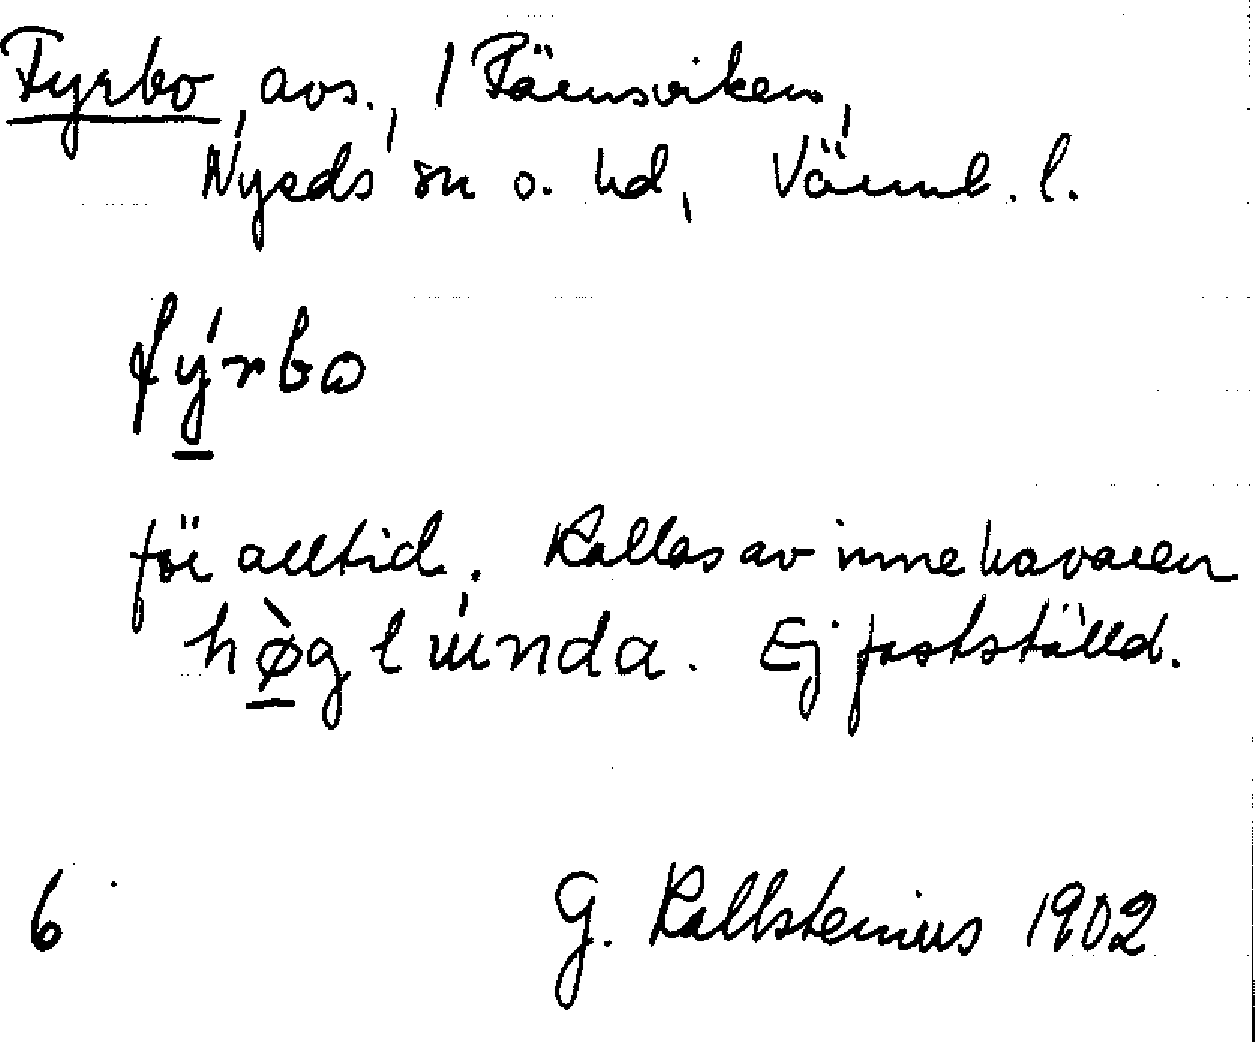 Fyrbo, avs., / Färnsviken,
Nyeds sn o. hd, Värml. l.
fýrbo
för alltid. Kallas av innehavaren
hø̀glúnda. Ej fastställd.
6 G. Kallstenius 1902